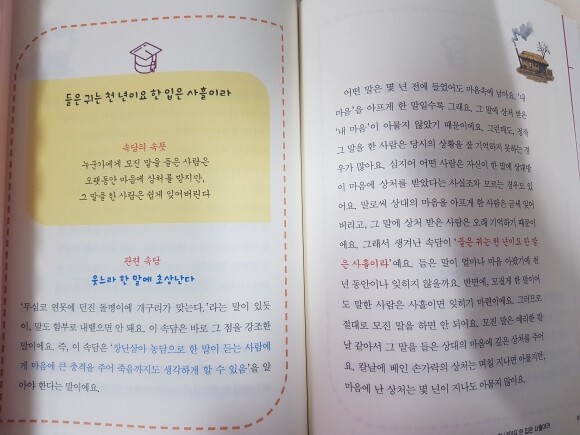 들은 귀는 천 년이요 한 입은 사흘이라
속담의 속뜻
누군가에게 모진 말을 들은 사람은
오랫동안 마음에 상처를 받지만,
그 말을 한 사람은 쉽게 잊어버린다.
관련 속담
웃느라 한 말에 초상난다
‘무심코 연못에 던진 돌멩이에 개구리가 맞는다.’라는 말이 있듯
이, 말도 함부로 내뱉으면 안 돼요. 이 속담은 바로 그 점을 강조한
말이에요. 즉, 이 속담은 ‘장난삼아 농담으로 한 말이 듣는 사람에
게 마음에 큰 충격을 주어 죽음까지도 생각하게 할 수 있음’을 알
아야 한다는 말이에요.
어떤 말은 몇 년 전에 들었어도 마음속에 남아요. ‘내
마음’을 아프게 한 말일수록 그래요. 그 말에 상처 받은
‘내 마음’이 아물지 않았기 때문이에요. 그런데도, 정작
그 말을 한 사람은 당시의 상황을 잘 기억하지 못하는 경
우가 많아요. 심지어 어떤 사람은 자신이 한 말에 상대방
이 마음에 상처를 받았다는 사실조차 모르는 경우도 있
어요. 말로써 상대의 마음을 아프게 한 사람은 금세 잊어
버리고, 그 말에 상처 받은 사람은 오래 기억하기 때문이
에요. 그래서 생겨난 속담이 ‘들은 귀는 천 년이요 한 말
은 사흘이라’예요. 들은 말이 얼마나 마음 아팠기에 천
년 동안이나 잊히지 않을까요. 반면에, 모질게 한 말이어
도 말한 사람은 사흘이면 잊히기 마련이에요. 그러므로
절대로 모진 말을 하면 안 되어요. 모진 말은 예리한 칼
날 같아서 그 말을 들은 상대의 마음에 깊은 상처를 주어
요. 칼날에 베인 손가락의 상처는 며칠 지나면 아물지만,
마음에 난 상처는 몇 년이 지나도 아물지 않아요.
한 입은 사흘이라